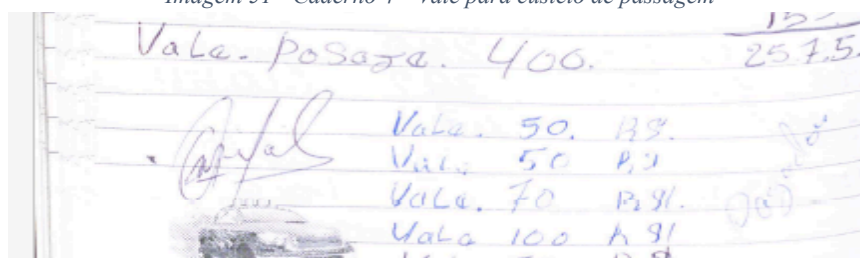 Imagem 31 - Caderno 4 - Vale para custeio de passagem
Vale. Posaze. 400.
257.5.
Vale. 50. R$.
Vale 50 R$
Vale. 70 R$.
Vale 100 R$